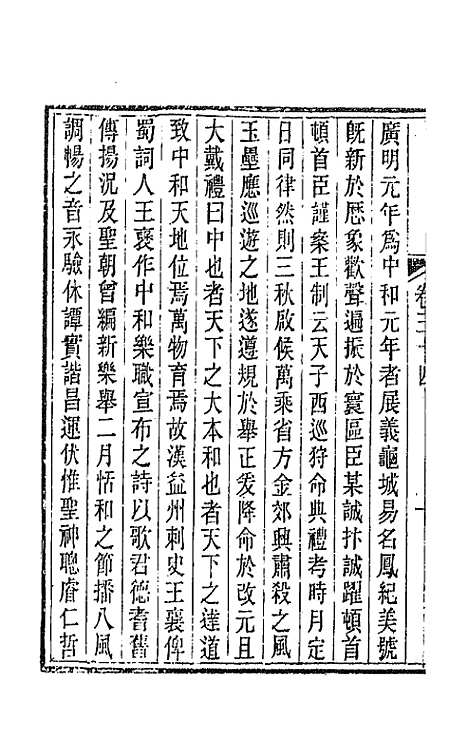 廣明元年爲中和元年者展義龜城易名鳳紀美號
旣新於厯象歡聲遍振於寰區臣某誠抃誠躍頓首
頓首臣謹案王制云天子西巡狩命典禮考時月定
日同律然則三秋啟候萬乘省方金郊興肅殺之風
玉壘應巡遊之地遂遵規於舉正爰降命於改元且
大戴禮曰中也者天下之大本和也者天下之達道
致中和天地位焉萬物育焉故漢益州刺史王襄俾
蜀詞人王襃作中和樂職宣布之詩以歌君德者舊
傳揚況及聖朝曾編新樂舉二月恬和之節播八風
調暢之音永驗休譚實諧昌運伏惟聖神聰睿仁哲
卷三十四